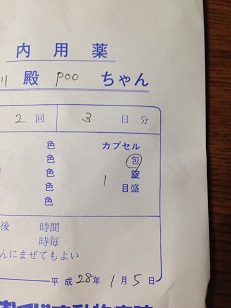 内用薬
川 殿 poo ちゃん
2 回 3 日分
色 カプセル
色 包
色 1 錠
色 目盛
後 時間
時毎
んにまぜてもよい
平成 28年 1月 5日